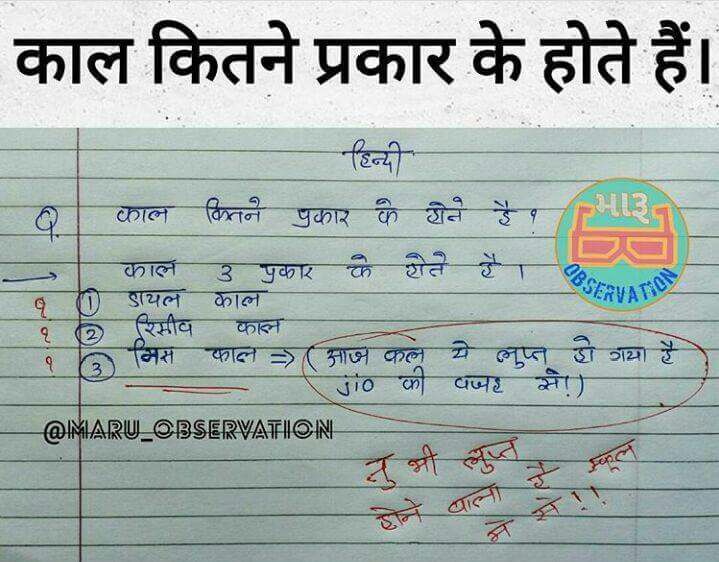 काल कितने प्रकार के होते हैं।
हिन्दी
Q. काल कितने प्रकार के होते है ?
→ काल 3 प्रकार के होते है ।
१ ① डायल काल
१ ② रिसीव काल
१ ③ मिस काल ⇒ (आज कल ये लुप्त हो गया है
jio की वजह से!)
મારૂ
OBSERVATION
@MARU_OBSERVATION
तु भी लुप्त
होने वाला है स्कूल
मे से!!